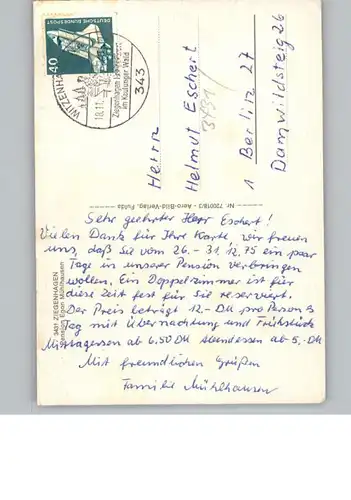 DEUTSCHE BUNDESPOST
40
WITZENHA
18.11.
Ziegenhagen
im Kaufunger Wald
343
Herrn
Helmut Eschert
3431
1 Berlin 27
Damwildsteig 26
Nr. 72001 Aero-Bild-Verlag, Fulda
3431 ZIEGENHAGEN
Pension Egon Mühlhausen
Sehr geehrter Herr Eschert!
Vielen Dank für Ihre Karte wir freuen
uns, daß Sie vom 26.-31.12.75 ein paar
Tage in unserer Pension verbringen
wollen. Ein Doppelzimmer ist für
diese Zeit fest für Sie reserviert.
Der Preis beträgt 12,- DM pro Person &
Tag mit Übernachtung und Frühstück
Mittagessen ab 6,50 DM Abendessen ab 5,- DM.
Mit freundlichen Grüßen
Familie Mühlhausen